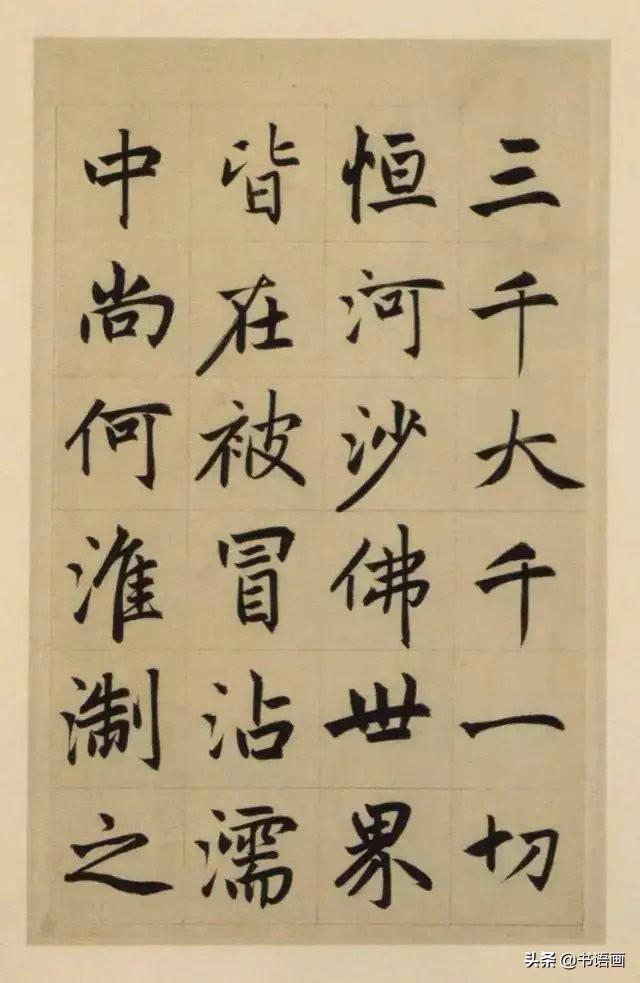 三千大千一切
恒河沙佛世界
皆在被冒沾濡
中尚何淮淛之
头条 @书语画